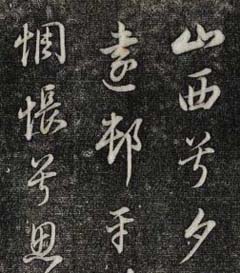 山西兮夕
遠邨平
惆悵兮思